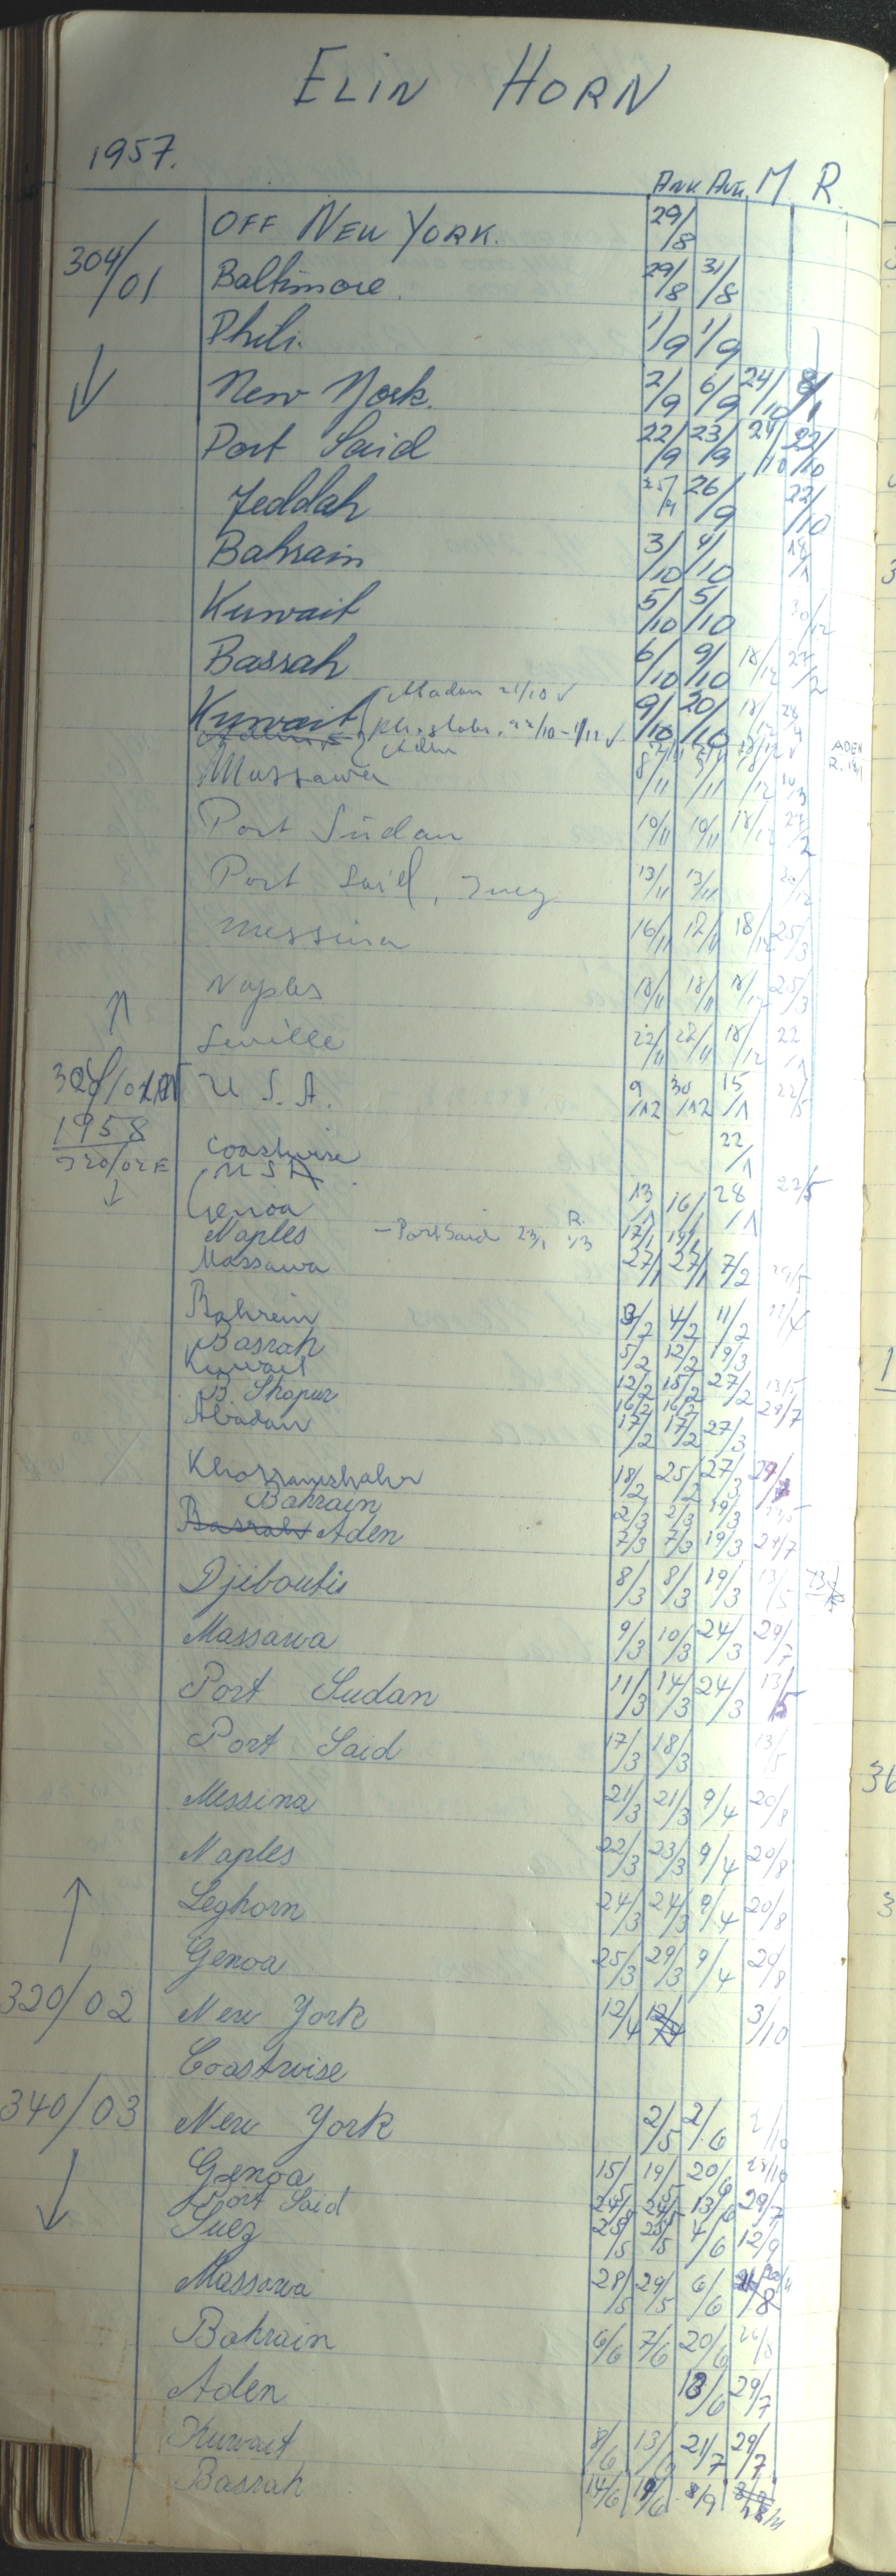 ELIN HORN
1957.
Ank Avg. M R.
OFF NEW YORK. 29/8
304/01 Baltimore. 29/8 31/8
Phili. 1/9 1/9
↓ New York. 2/9 6/9 24/10
Port Said 22/9 23/9 24/10 22/10
Jeddah 26/9 22/10
Bahrain 3/10 4/10
Kuwait 5/10 5/10 30/12
Bassah 6/10 9/10 18/12
Kuwait 9/10 20/10 18/12
Abadan 21/10 ✓
Aden
ADEN
Massawa 18/12
Port Sudan 10/11 10/11 18/12
Port Said, Suez 13/11 13/11
Messina 16/11 17/11 18/12 25/3
Naples 18/11 18/11 18/12 25/3
↑
Seville 22/11 22/11 18/12 22/1
U.S.A. 9/12 30/12 15/1 22/5
1958
Coastwise 22/1
320/02E USA.
↓ Genoa 13/1 16/1 28/1 22/5
Naples - Port Said 23/1 R. 1/3 17/1 19/1
Massawa 27/1 27/1 7/2
Bahrein 3/2 4/2 11/2
Basrah 5/2 12/2 19/3
Kuwait 12/2 15/2 27/2 13/5
B Shapur 16/2 16/2 29/7
Abadan 17/2 17/2 27/3
Khorramshahr 18/2 25/2 27/3 29/7
Bahrain 2/3 2/3 19/3
Basrah Aden 7/3 7/3 19/3 29/7
Djiboutis 8/3 8/3 19/3 13/5
Massawa 9/3 10/3 24/3 29/7
Port Sudan 11/3 14/3 24/3 13/5
Port Said 17/3 18/3 13/5
Messina 21/3 21/3 9/4 20/8
Naples 22/3 23/3 9/4 20/8
↑ Leghorn 24/3 24/3 9/4 20/8
Genoa 25/3 29/3 9/4 20/8
320/02 New York 12/4 3/10
Coastwise
340/03 New York 2/5 2/6 2/10
Genoa 15/5 19/5 20/6
↓ Port Said 24/5 24/5 13/6 29/7
Suez 25/5 25/5 4/6 12/9
Massawa 28/5 29/5 6/6
Bahrain 6/6 7/6 20/6
Aden 13/6 29/7
Kuwait 8/6 13/6 21/7 29/7
Basrah 14/6 19/6 8/9